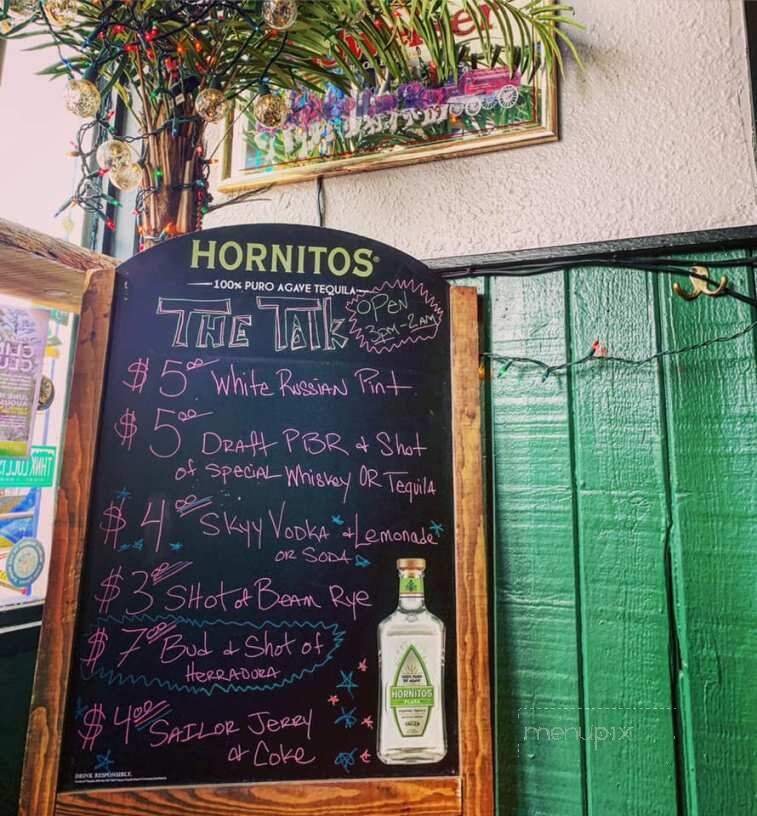 HORNITOS®
100% PURO AGAVE TEQUILA
THE TALK
OPEN
3PM-2AM
$5.00 White Russian Pint
$5.00 Draft PBR & Shot
of Special Whiskey OR Tequila
$4.00 SKYY VODKA & Lemonade
OR SODA
$3.00 SHOT of BEAM Rye
$7.00 Bud & Shot of
HERRADURA
$4.00 SAILOR JERRY
& Coke
HORNITOS
PLATA
DRINK RESPONSIBLY.
menupix